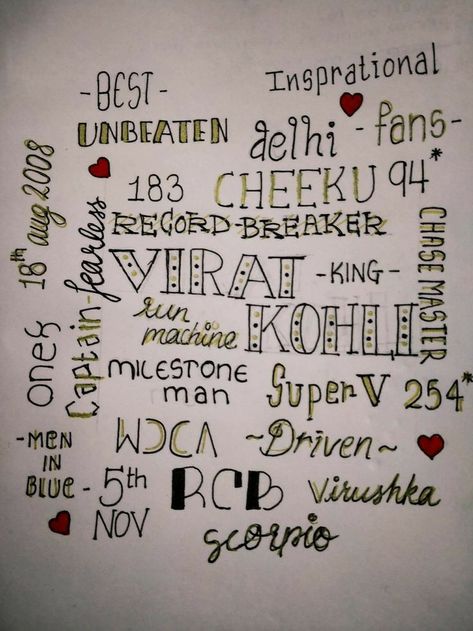 -BEST-
Insprational
UNBEATEN
delhi
-fans-
18th aug 2008
183
CHEEKU
94*
fearless
RECORD-BREAKER
Captain-
VIRAT
-KING-
CHASE MASTER
run
machine
KOHLI
one8
MILESTONE
man
Super V
254*
-MEN
IN
BLUE-
WDCA
~Driven~
5th
NOV
RCB
Virushka
scorpio